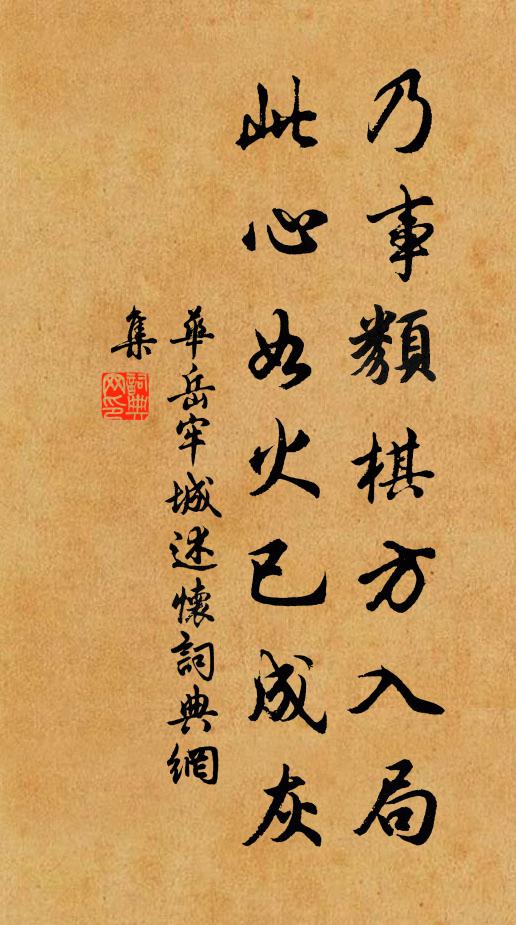 乃事類棋方入局
此心如火已成灰
華岳牢城述懷詞典網
集
詞典網印